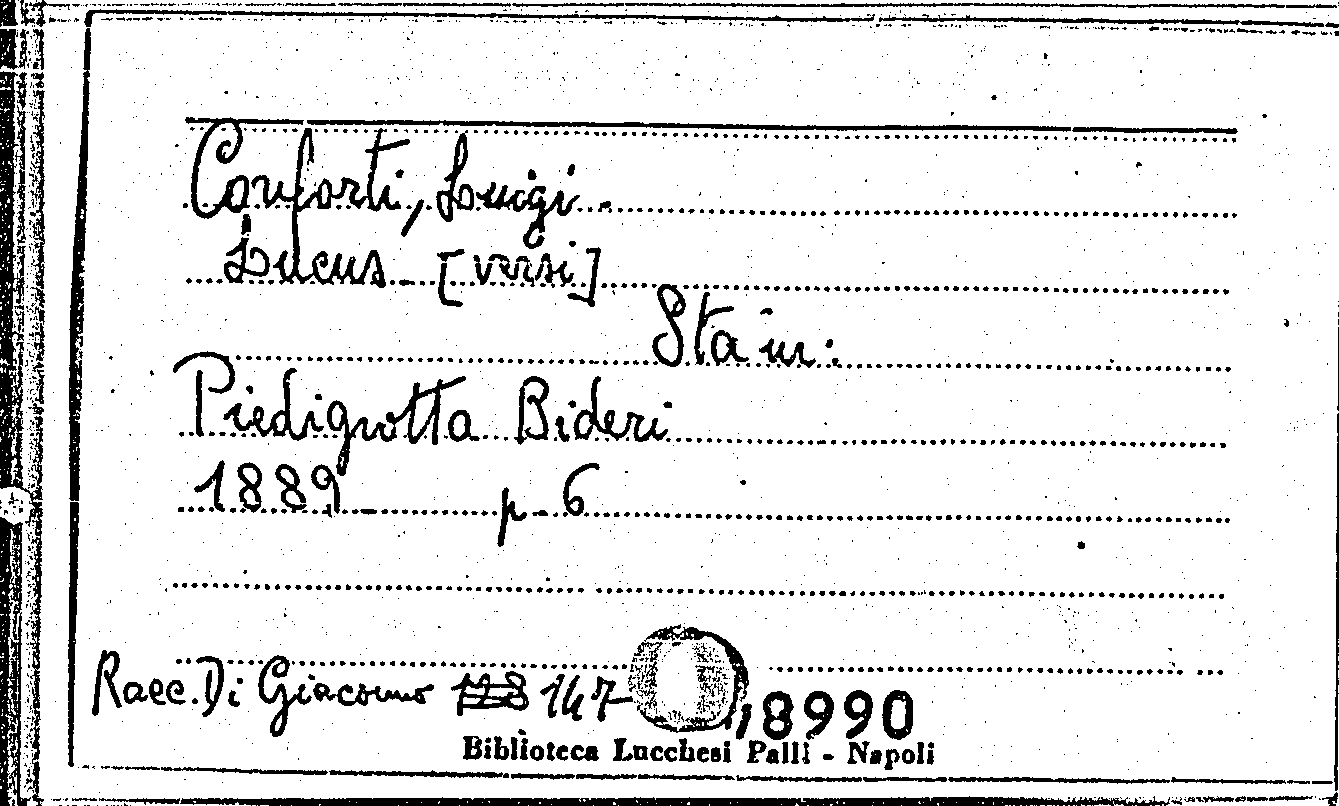 Conforti, Luigi.
Lucus - [versi]
Sta in:
Piedigrotta Bideri
1889 - p. 6
Racc. Di Giacomo 147
18990
Biblioteca Lucchesi Palli - Napoli